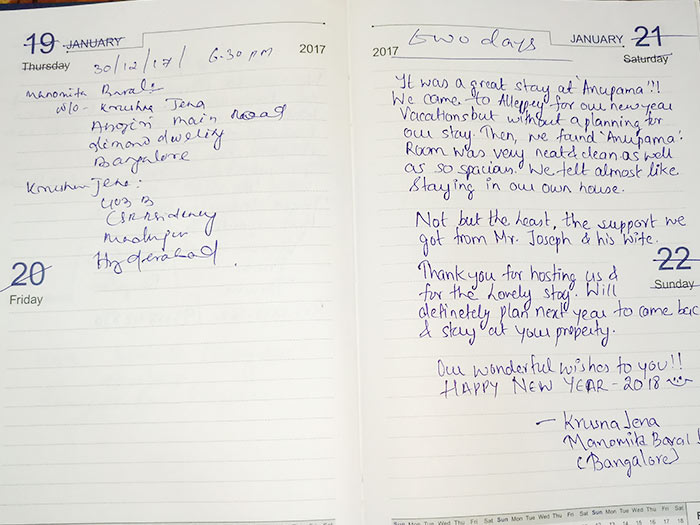 19 JANUARY
Thursday
30/12/17/ 6.30 pm
2017
Manomita Baral
W/O - Krushna Jena
main road
Bangalore
Krushna Jena:
403 B
Madhapur
Hyderabad.
20
Friday
two days
2017
JANUARY 21
Saturday
It was a great stay at 'Anupama'!!
We came to Alleppey for our new year
Vacations but without a planning for
our stay. Then, we found 'Anupama'.
Room was very neat & clean as well
as so spacian. We felt almost like
staying in our own house.
Not but the least, the support we
got from Mr. Joseph & his wife.
22
Sunday
Thank you for hosting us &
for the lovely stay. Will
definetely plan next year to come bac
& stay at your property.
Our wonderful wishes to you!!
HAPPY NEW YEAR - 2018
- Krusna Jena
Manomita Baral
(Bangalore)